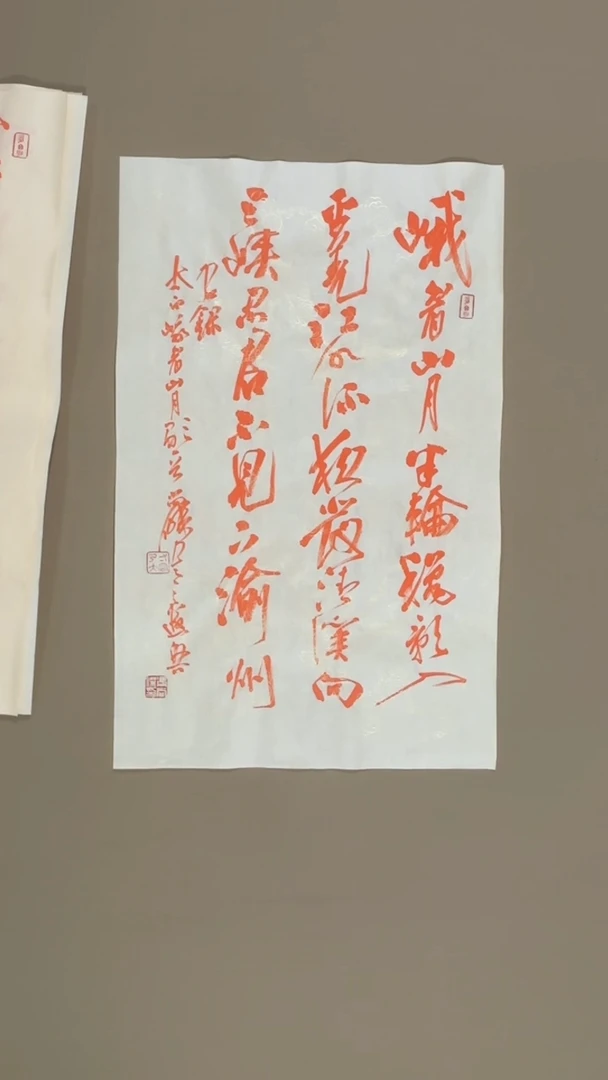 峨眉山月半輪秋影入
平羌江水流夜發清溪向
三峽思君不見下渝州
録
太白峨眉山月